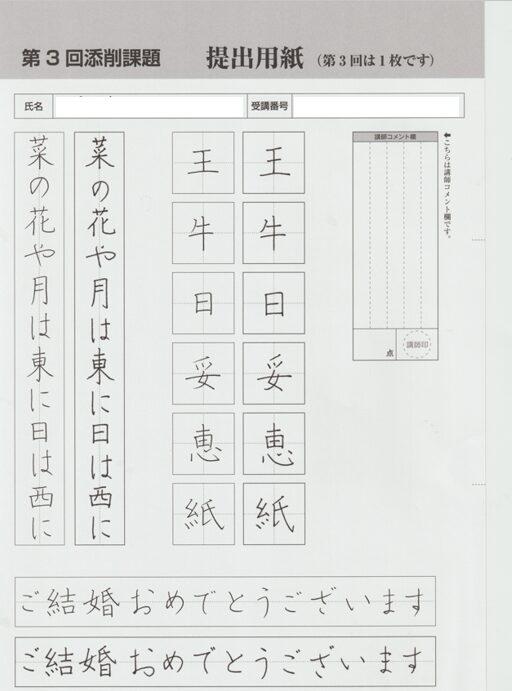 第3回添削課題 提出用紙(第3回は1枚です)
氏名 受講番号
⬅こちらは講師コメント欄です。
講師コメント欄
点 講師印
王 王
牛 牛
日 日
妥 妥
恵 恵
紙 紙
菜の花や月は東に日は西に
菜の花や月は東に日は西に
ご結婚おめでとうございます
ご結婚おめでとうございます